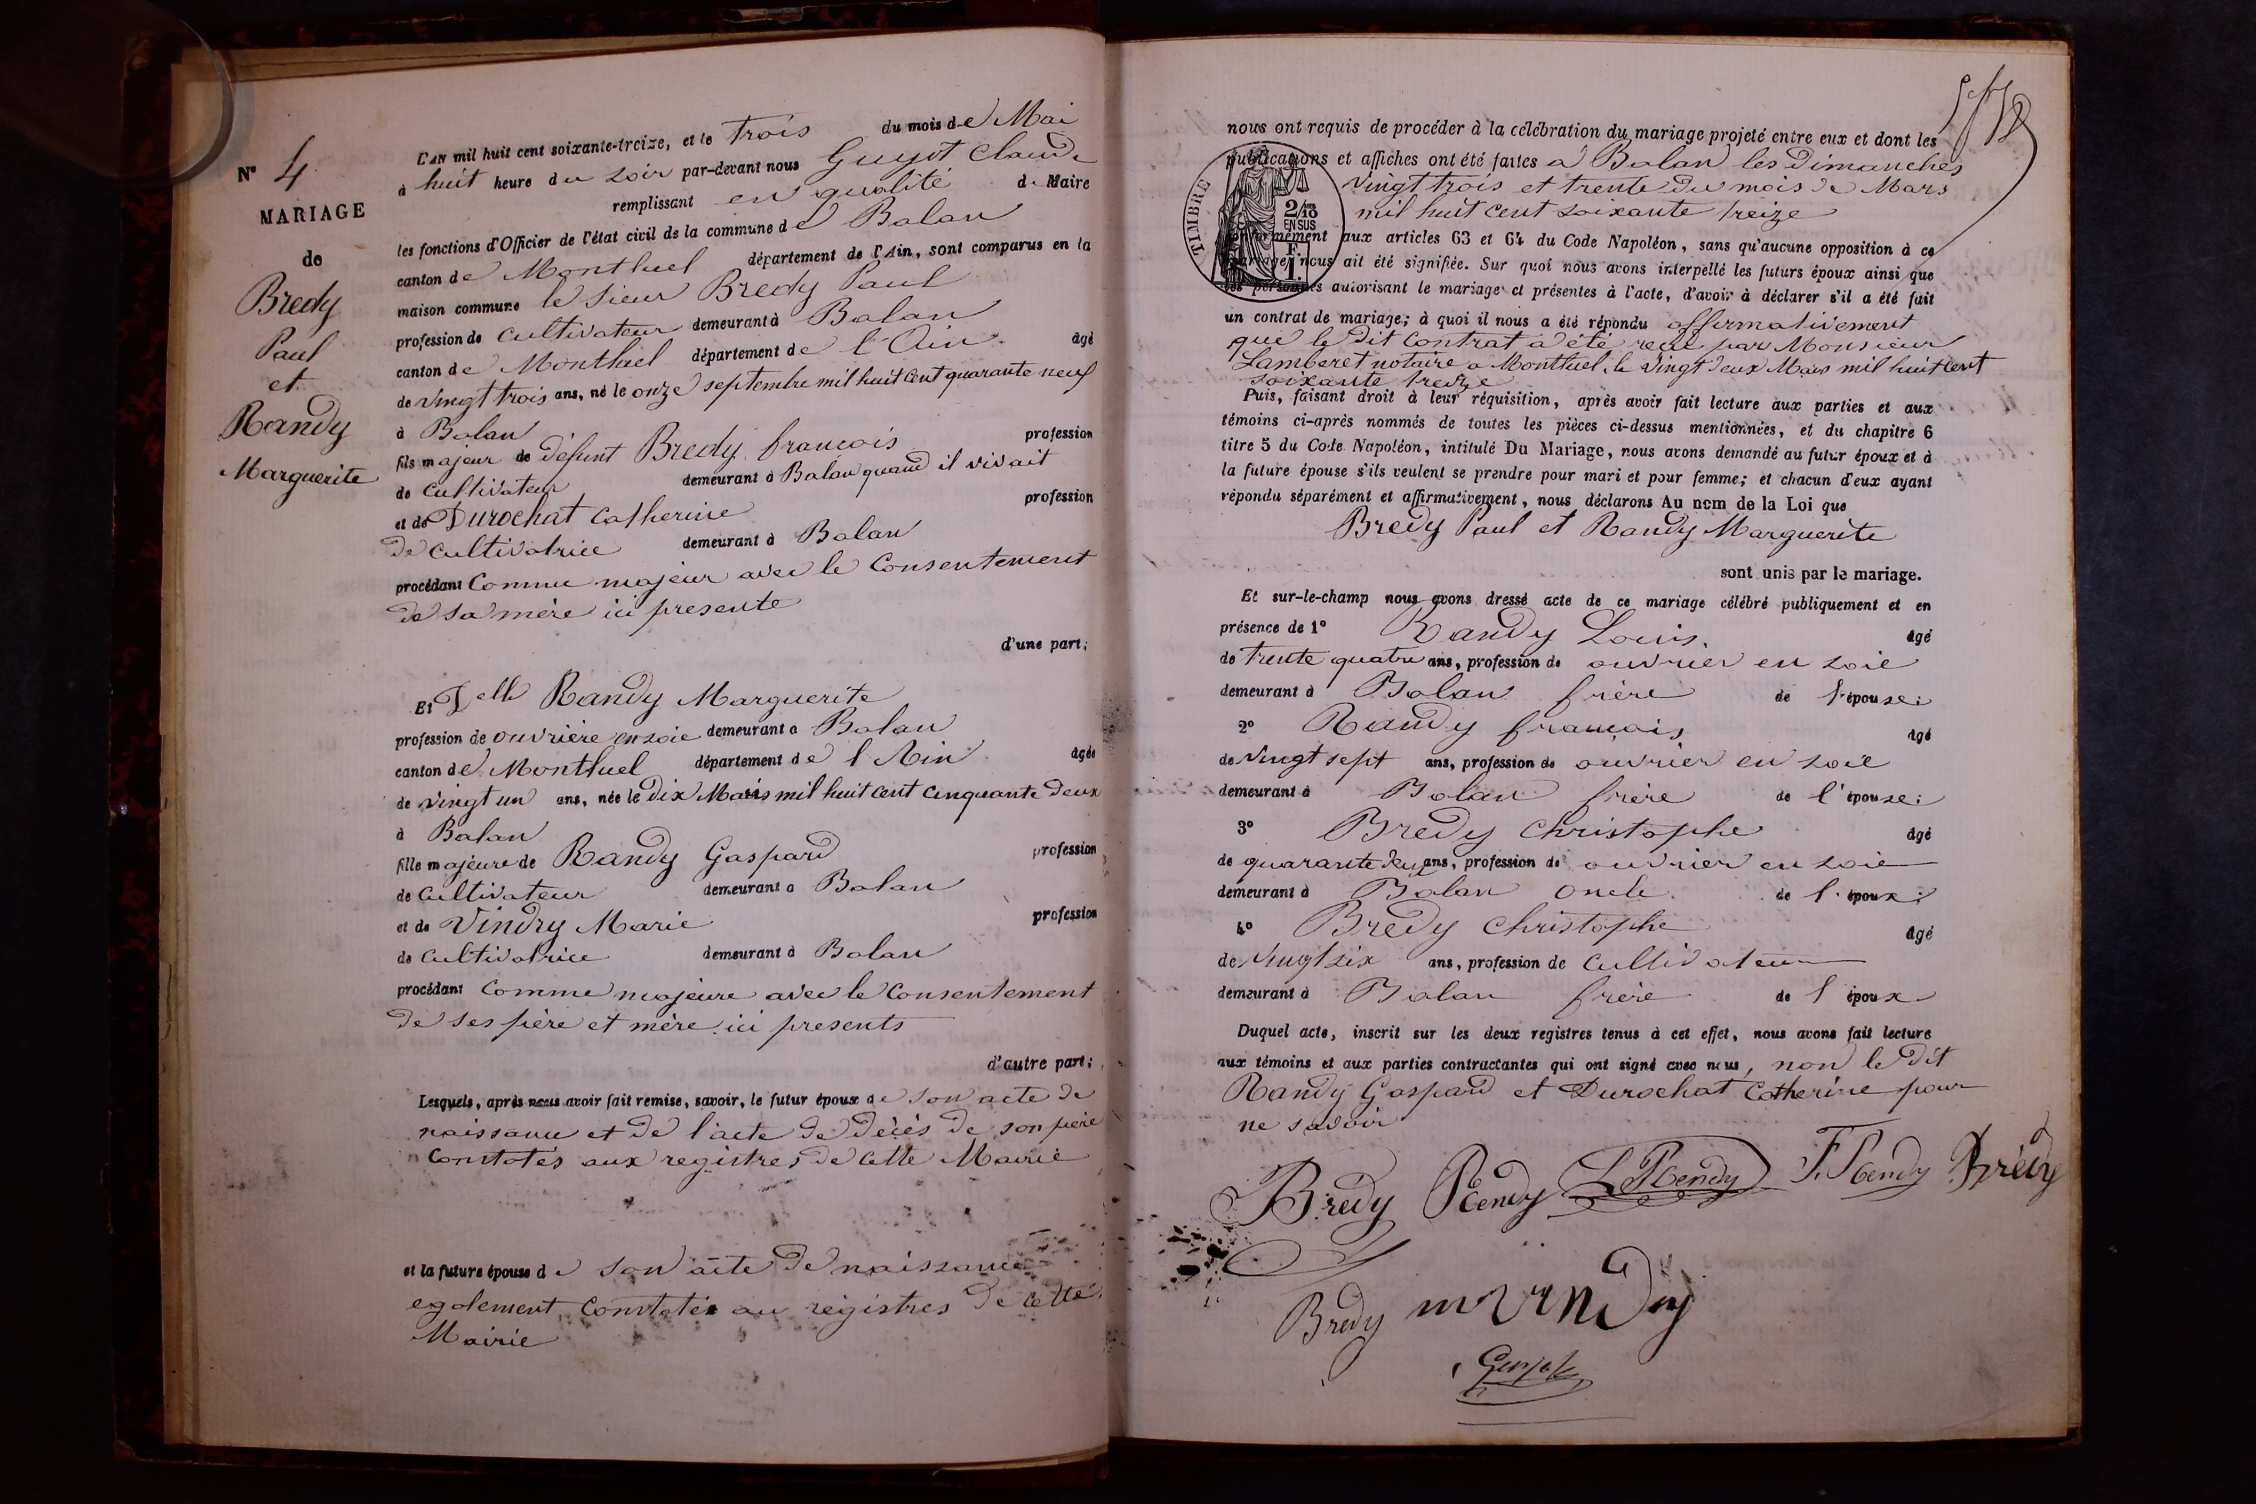 N° 4
MARIAGE
de
Bredy
Paul
et
Randy
Marguerite
L'AN mil huit cent soixante-treize, et le trois du mois de Mai
à huit heure du soir par-devant nous Guyot Claude
remplissant en qualité de Maire
les fonctions d'Officier de l'état civil de la commune de Balan
canton de Montluel département de l'Ain, sont comparus en la
maison commune le sieur Bredy Paul
profession de cultivateur demeurant à Balan
canton de Montluel département de l'Ain agé
de vingt trois ans, né le onze septembre mil huit cent quarante neuf
à Balan
fils majeur de défunt Bredy francois profession
de cultivateur demeurant à Balan quand il vivait
et de Durochat Catherine profession
de cultivatrice demeurant à Balan
procédant Comme majeur avec le Consentement
de sa mère ici presente
d'une part;
Et Delle Randy Marguerite
profession de ouvrière en soie demeurant a Balan
canton de Montluel département de l'Ain agée
de vingt un ans, née le dix Mars mil huit cent cinquante deux
à Balan
fille majeure de Randy Gaspard profession
de cultivateur demeurant a Balan
et de Vindry Marie profession
de cultivatrice demeurant à Balan
procédant comme majeure avec le consentement
de ses père et mère ici presents
d'autre part;
Lesquels, après nous avoir fait remise, savoir, le futur époux de son acte de
naissance et de l'acte de décès de son père
Constatés aux registres de cette Mairie
et la future épouse de son acte de naissance
egalement Constatés au registres de cette
Mairie
nous ont requis de procéder à la célébration du mariage projeté entre eux et dont les
publications et affiches ont été faites à Balan les Dimanches
vingt trois et trente du mois de Mars
mil huit cent soixante treize
TIMBRE
2/10
EN SUS
conformément aux articles 63 et 64 du Code Napoléon, sans qu'aucune opposition à ce
mariage nous ait été signifiée. Sur quoi nous avons interpellé les futurs époux ainsi que
les personnes autorisant le mariage et présentes à l'acte, d'avoir à déclarer s'il a été fait
un contrat de mariage; à quoi il nous a été répondu affirmativement
que le dit Contrat a été reçu par Monsieur
Lamberet notaire a Montluel, le vingt deux Mars mil huit cent
soixante treize
Puis, faisant droit à leur réquisition, après avoir fait lecture aux parties et aux
témoins ci-après nommés de toutes les pièces ci-dessus mentionnées, et du chapitre 6
titre 5 du Code Napoléon, intitulé Du Mariage, nous avons demandé au futur époux et à
la future épouse s'ils veulent se prendre pour mari et pour femme; et chacun d'eux ayant
répondu séparément et affirmativement, nous déclarons Au nom de la Loi que
Bredy Paul et Randy Marguerite
sont unis par le mariage.
Et sur-le-champ nous avons dressé acte de ce mariage célébré publiquement et en
présence de 1° Randy Louis. agé
de trente quatre ans, profession de ouvrier en soie
demeurant à Balan frère de l'épouse;
2° Randy francois agé
de vingt sept ans, profession de ouvrier en soie
demeurant à Balan frère de l'épouse;
3° Bredy christophe agé
de quarante deux ans, profession de ouvrier en soie
demeurant à Balan oncle de l'époux;
4° Bredy christophe agé
de vingt six ans, profession de cultivateur
demeurant à Balan frère de l'époux
Duquel acte, inscrit sur les deux registres tenus à cet effet, nous avons fait lecture
aux témoins et aux parties contractantes qui ont signé avec nous, non le dit
Randy Gaspard et Durochat Catherine pour
ne savoir
Bredy Rendy L Rendy F. Rendy Bredy
Bredy m vindry
Guyot